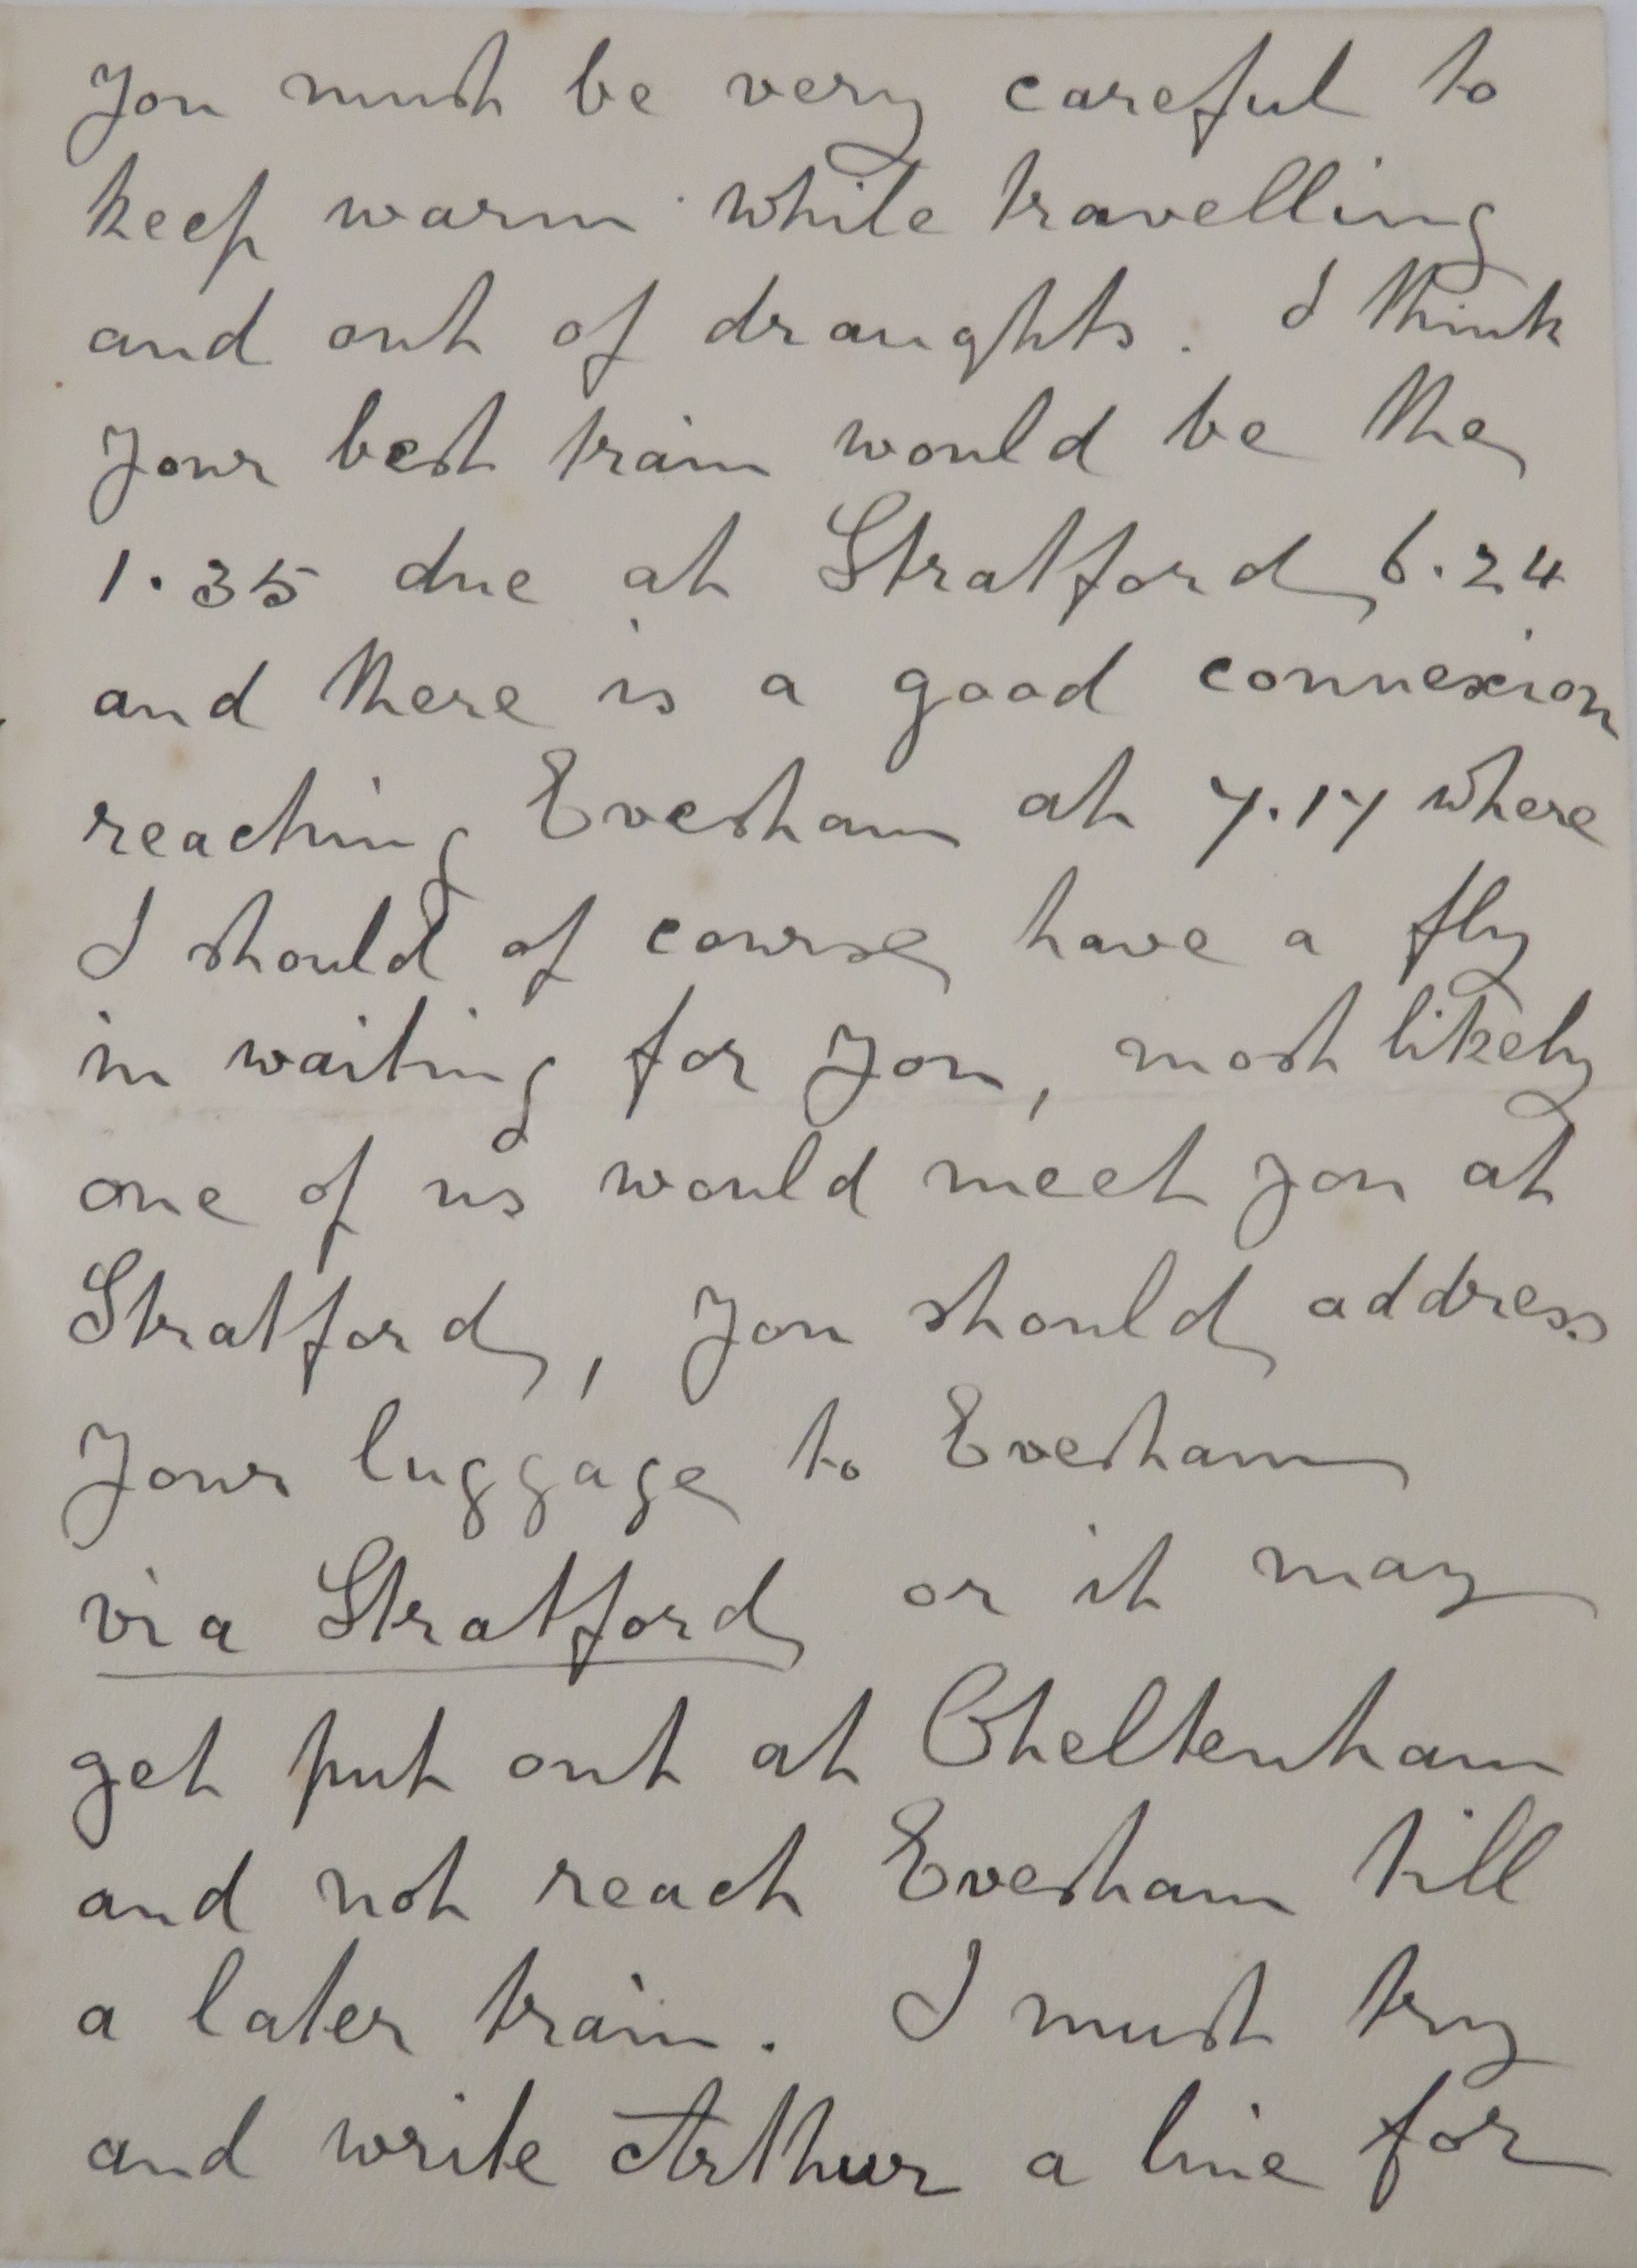 You must be very careful to
keep warm while travelling
and out of draughts. I think
your best train would be the
1.35 due at Stratford 6.24
and there is a good connexion
reaching Evesham at 7.17 where
I should of course have a fly
in waiting for you, most likely
one of us would meet you at
Stratford, you should address
your luggage to Evesham
via Stratford or it may
get put out at Cheltenham
and not reach Evesham till
a later train. I must try
and write Arthur a line for